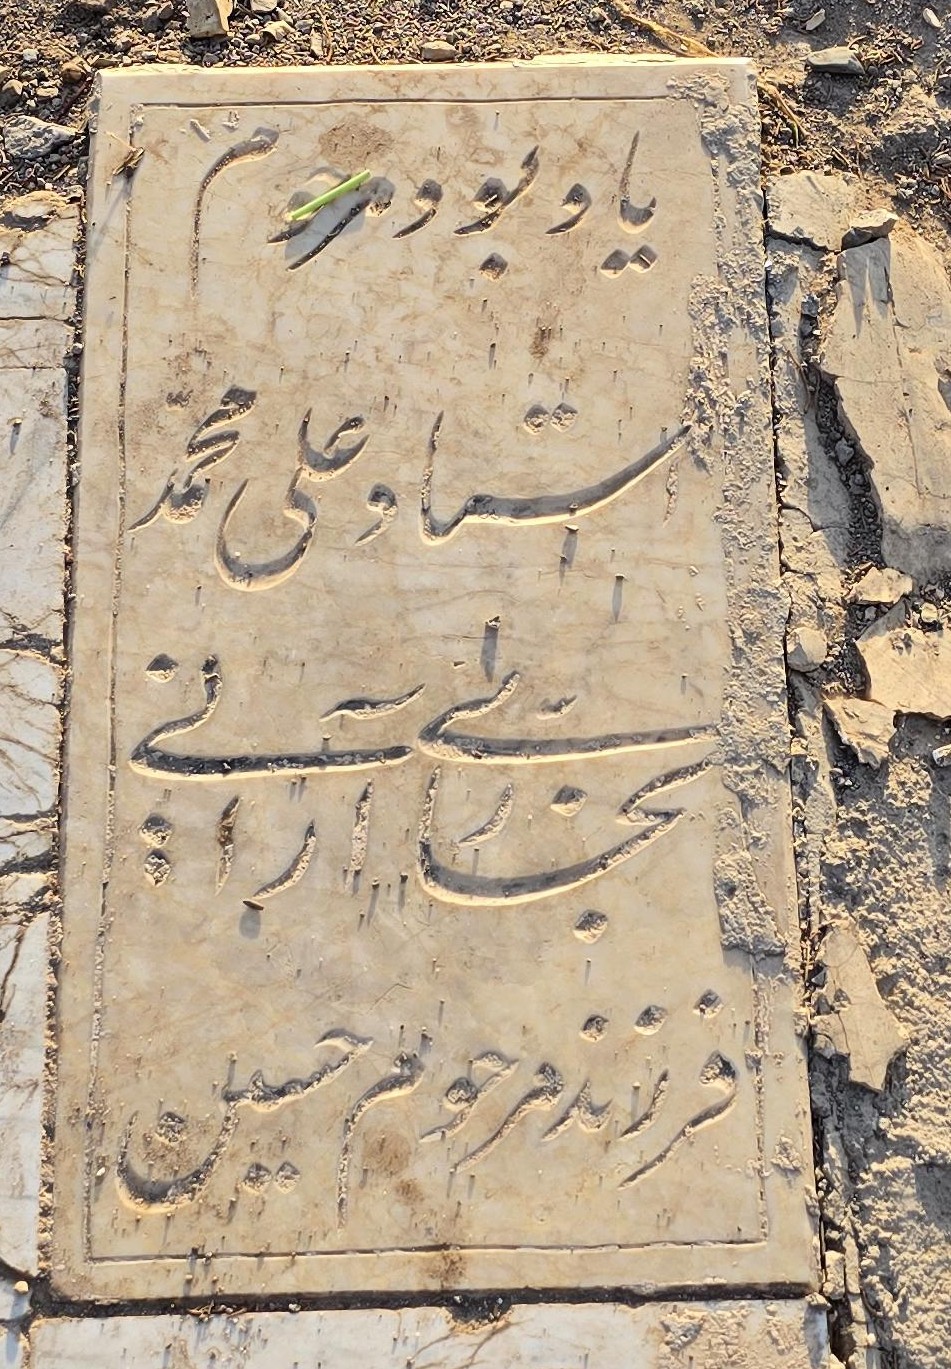 یادبود مرحوم
استاد علی محمد
آرانی
فرزند مرحوم حسین